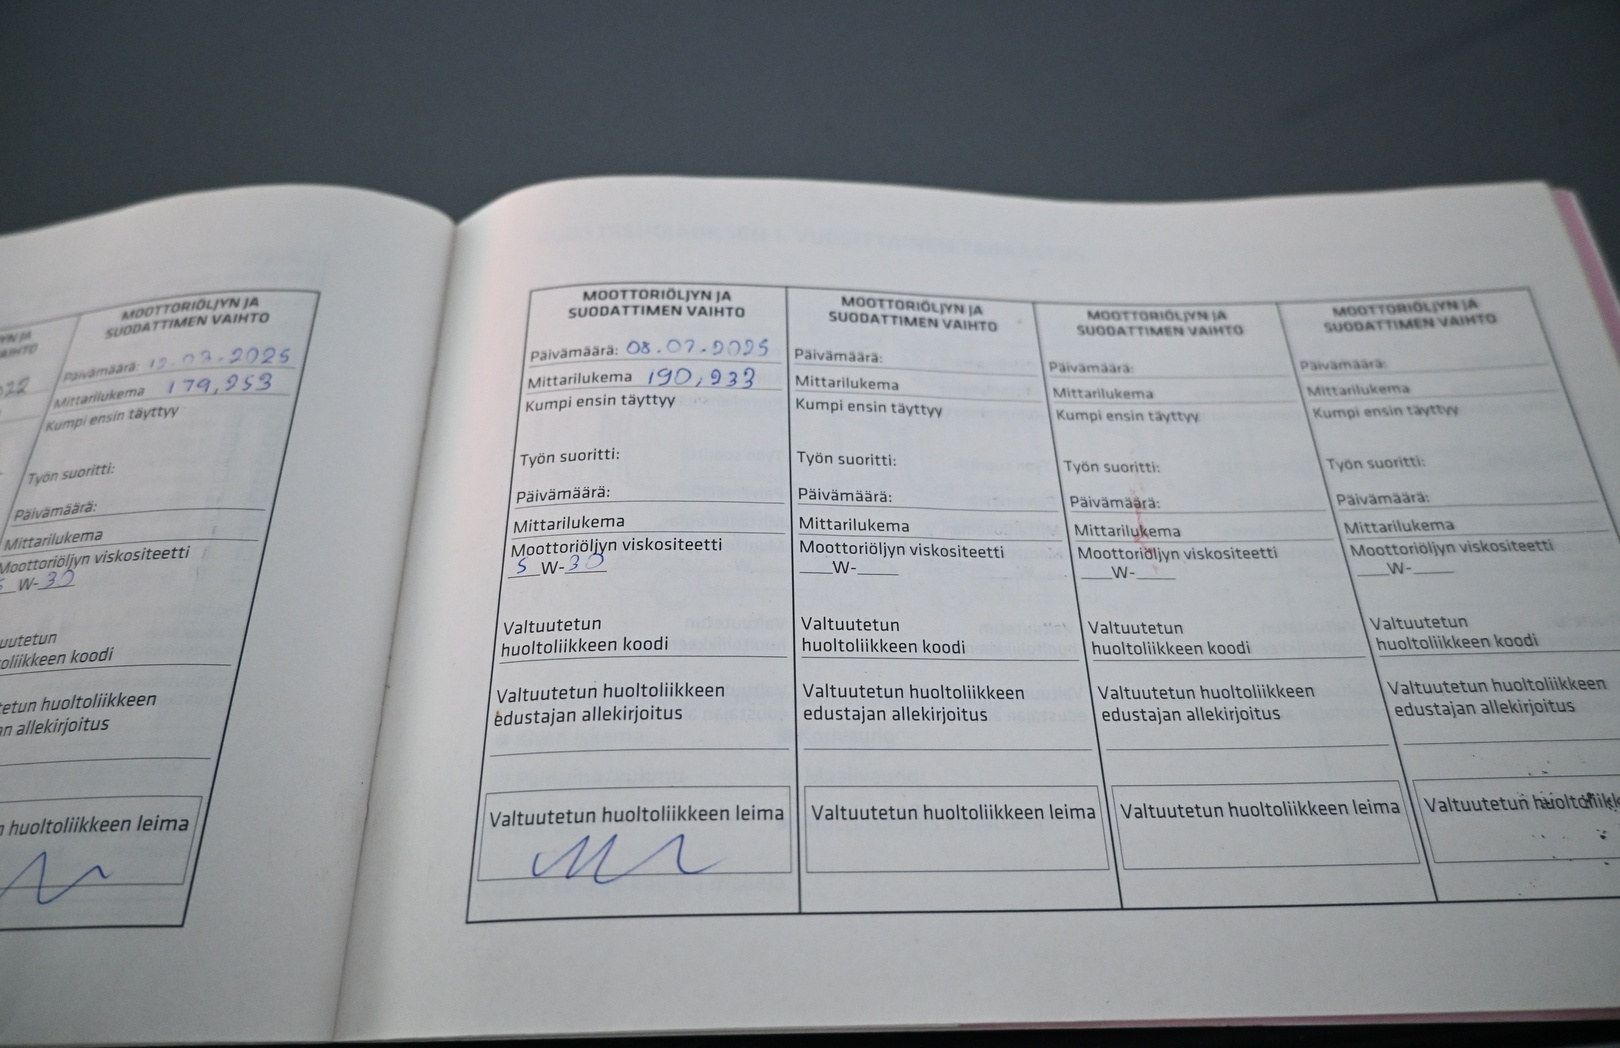 YN JA
AIHTO
022
MOOTTORIÖLJYN JA
SUODATTIMEN VAIHTO
Päivämäärä:
Mittarilukema 179,253
Kumpi ensin täyttyy
Työn suoritti:
Päivämäärä:
Mittarilukema
Moottoriöljyn viskositeetti
5 W-30
uutetun
oliikkeen koodi
tetun huoltoliikkeen
an allekirjoitus
n huoltoliikkeen leima
MOOTTORIÖLJYN JA
SUODATTIMEN VAIHTO
Päivämäärä: 08.07.2025
Mittarilukema 190,933
Kumpi ensin täyttyy
Työn suoritti:
Päivämäärä:
Mittarilukema
Moottoriöljyn viskositeetti
5 W-30
Valtuutetun
huoltoliikkeen koodi
Valtuutetun huoltoliikkeen
edustajan allekirjoitus
Valtuutetun huoltoliikkeen leima
MOOTTORIÖLJYN JA
SUODATTIMEN VAIHTO
Päivämäärä:
Mittarilukema
Kumpi ensin täyttyy
Työn suoritti:
Päivämäärä:
Mittarilukema
Moottoriöljyn viskositeetti
___W-____
Valtuutetun
huoltoliikkeen koodi
Valtuutetun huoltoliikkeen
edustajan allekirjoitus
Valtuutetun huoltoliikkeen leima
MOOTTORIÖLJYN JA
SUODATTIMEN VAIHTO
Päivämäärä:
Mittarilukema
Kumpi ensin täyttyy
Työn suoritti:
Päivämäärä:
Mittarilukema
Moottoriöljyn viskositeetti
___W-____
Valtuutetun
huoltoliikkeen koodi
Valtuutetun huoltoliikkeen
edustajan allekirjoitus
Valtuutetun huoltoliikkeen leima
MOOTTORIÖLJYN JA
SUODATTIMEN VAIHTO
Päivämäärä:
Mittarilukema
Kumpi ensin täyttyy
Työn suoritti:
Päivämäärä:
Mittarilukema
Moottoriöljyn viskositeetti
___W-____
Valtuutetun
huoltoliikkeen koodi
Valtuutetun huoltoliikkeen
edustajan allekirjoitus
Valtuutetun huoltoliikk